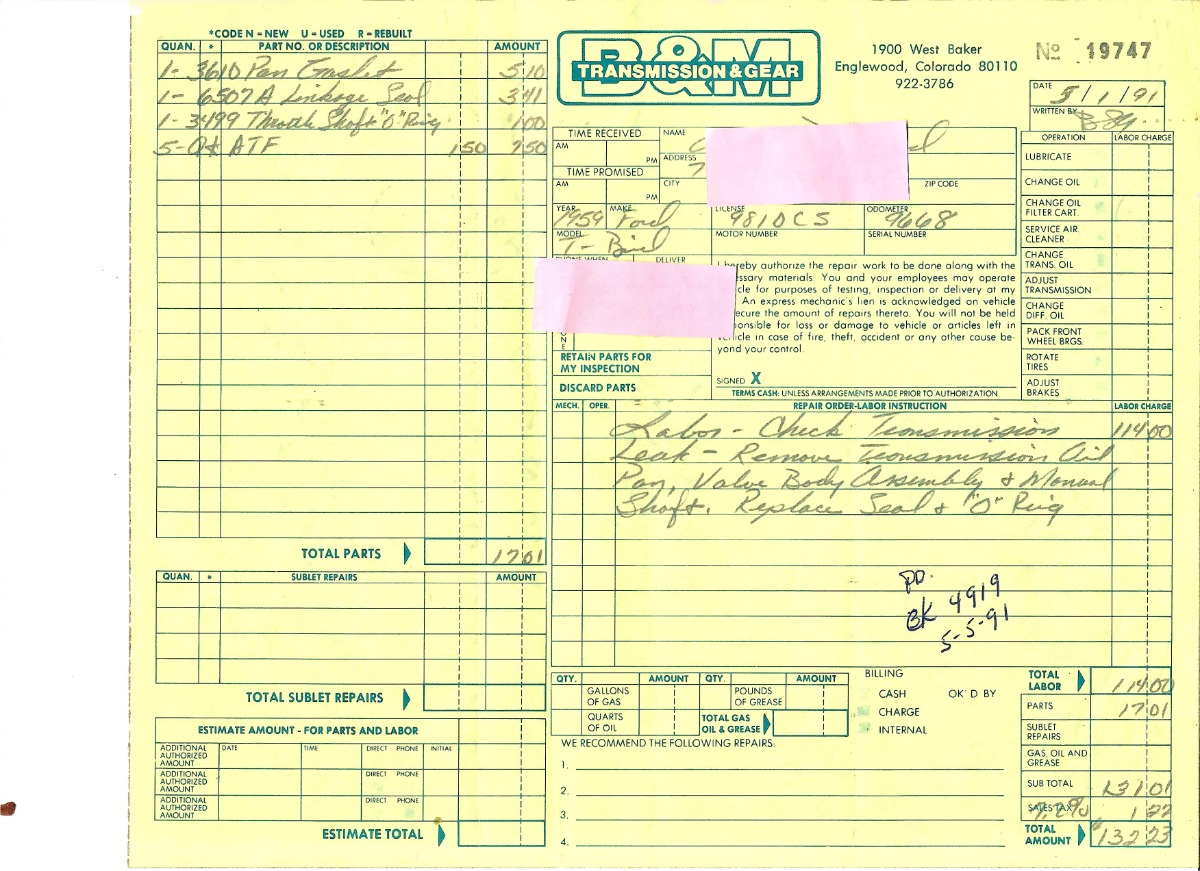 *CODE N - NEW U - USED R - REBUILT
QUAN. * PART NO. OR DESCRIPTION AMOUNT
1- 3610 Pan Gasket 5 10
1- 6507A Linkage Seal 3 41
1- 3499 Throttle Shaft "O" Ring 1 00
5- Qt ATF 1 50 7 50
TOTAL PARTS 17 01
QUAN. * SUBLET REPAIRS AMOUNT
TOTAL SUBLET REPAIRS
ESTIMATE AMOUNT - FOR PARTS AND LABOR
ADDITIONAL AUTHORIZED AMOUNT DATE TIME DIRECT PHONE INITIAL
ADDITIONAL AUTHORIZED AMOUNT DIRECT PHONE
ADDITIONAL AUTHORIZED AMOUNT DIRECT PHONE
ESTIMATE TOTAL
B&M
TRANSMISSION & GEAR
1900 West Baker
Englewood, Colorado 80110
922-3786
No 19747
DATE 5/1/91
WRITTEN BY
TIME RECEIVED
AM PM
TIME PROMISED
AM PM
NAME
ADDRESS 7
CITY ZIP CODE
YEAR 1959 MAKE Ford LICENSE 981DCS ODOMETER 9668
MODEL T-Bird MOTOR NUMBER SERIAL NUMBER
PHONE WHEN DELIVER
RETAIN PARTS FOR
MY INSPECTION
DISCARD PARTS
hereby authorize the repair work to be done along with the
essary materials. You and your employees may operate
icle for purposes of testing, inspection or delivery at my
An express mechanic's lien is acknowledged on vehicle
ecure the amount of repairs thereto. You will not be held
ponsible for loss or damage to vehicle or articles left in
vehicle in case of fire, theft, accident or any other cause be-
yond your control.
SIGNED X
TERMS CASH: UNLESS ARRANGEMENTS MADE PRIOR TO AUTHORIZATION
OPERATION LABOR CHARGE
LUBRICATE
CHANGE OIL
CHANGE OIL
FILTER CART.
SERVICE AIR
CLEANER
CHANGE
TRANS. OIL
ADJUST
TRANSMISSION
CHANGE
DIFF. OIL
PACK FRONT
WHEEL BRGS.
ROTATE
TIRES
ADJUST
BRAKES
MECH. OPER. REPAIR ORDER-LABOR INSTRUCTION LABOR CHARGE
Labor - Check Transmission 114 00
Leak - Remove Transmission Oil
Pan, Valve Body Assembly & Manual
Shaft. Replace Seal & "O" Ring
PD.
BK 4919
5-5-91
QTY. AMOUNT QTY. AMOUNT
GALLONS OF GAS POUNDS OF GREASE
QUARTS OF OIL TOTAL GAS OIL & GREASE
BILLING
CASH OK'D BY
CHARGE
INTERNAL
WE RECOMMEND THE FOLLOWING REPAIRS:
1.
2.
3.
4.
TOTAL LABOR 114 00
PARTS 17 01
SUBLET REPAIRS
GAS, OIL AND GREASE
SUB TOTAL 131 01
SALES TAX 7.2% 1 22
TOTAL AMOUNT $132 23